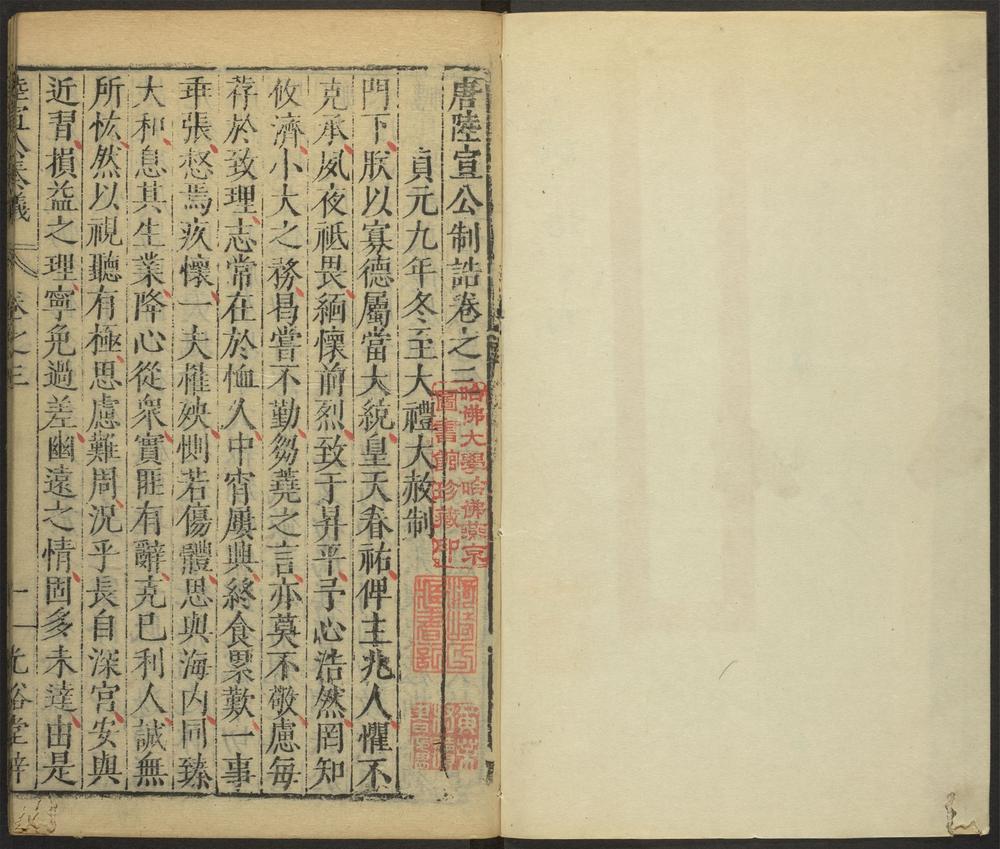 唐陸宣公制誥卷之三
貞元九年冬至大禮大赦制
門下朕以寡德屬當大統皇天眷祐俾主兆人懼不
克承夙夜祗畏緬懷前烈致于昇平予心浩然罔知
攸濟小大之務曷嘗不勤芻蕘之言亦莫不敬慮每
荐於致理志常在於恤人中宵屢興終食累歎一事
乖張惄焉疚懷一夫罹殃惻若傷體思與海內同臻
大和息其生業降心從衆實匪有辭克已利人誠無
所恡然以視聽有極思慮難周況乎長自深宮安與
近習損益之理寧免過差幽遠之情固多未達由是
陸宣公奏議 卷之三 一 光裕堂梓
哈佛大學哈佛燕京
圖書館珍藏印